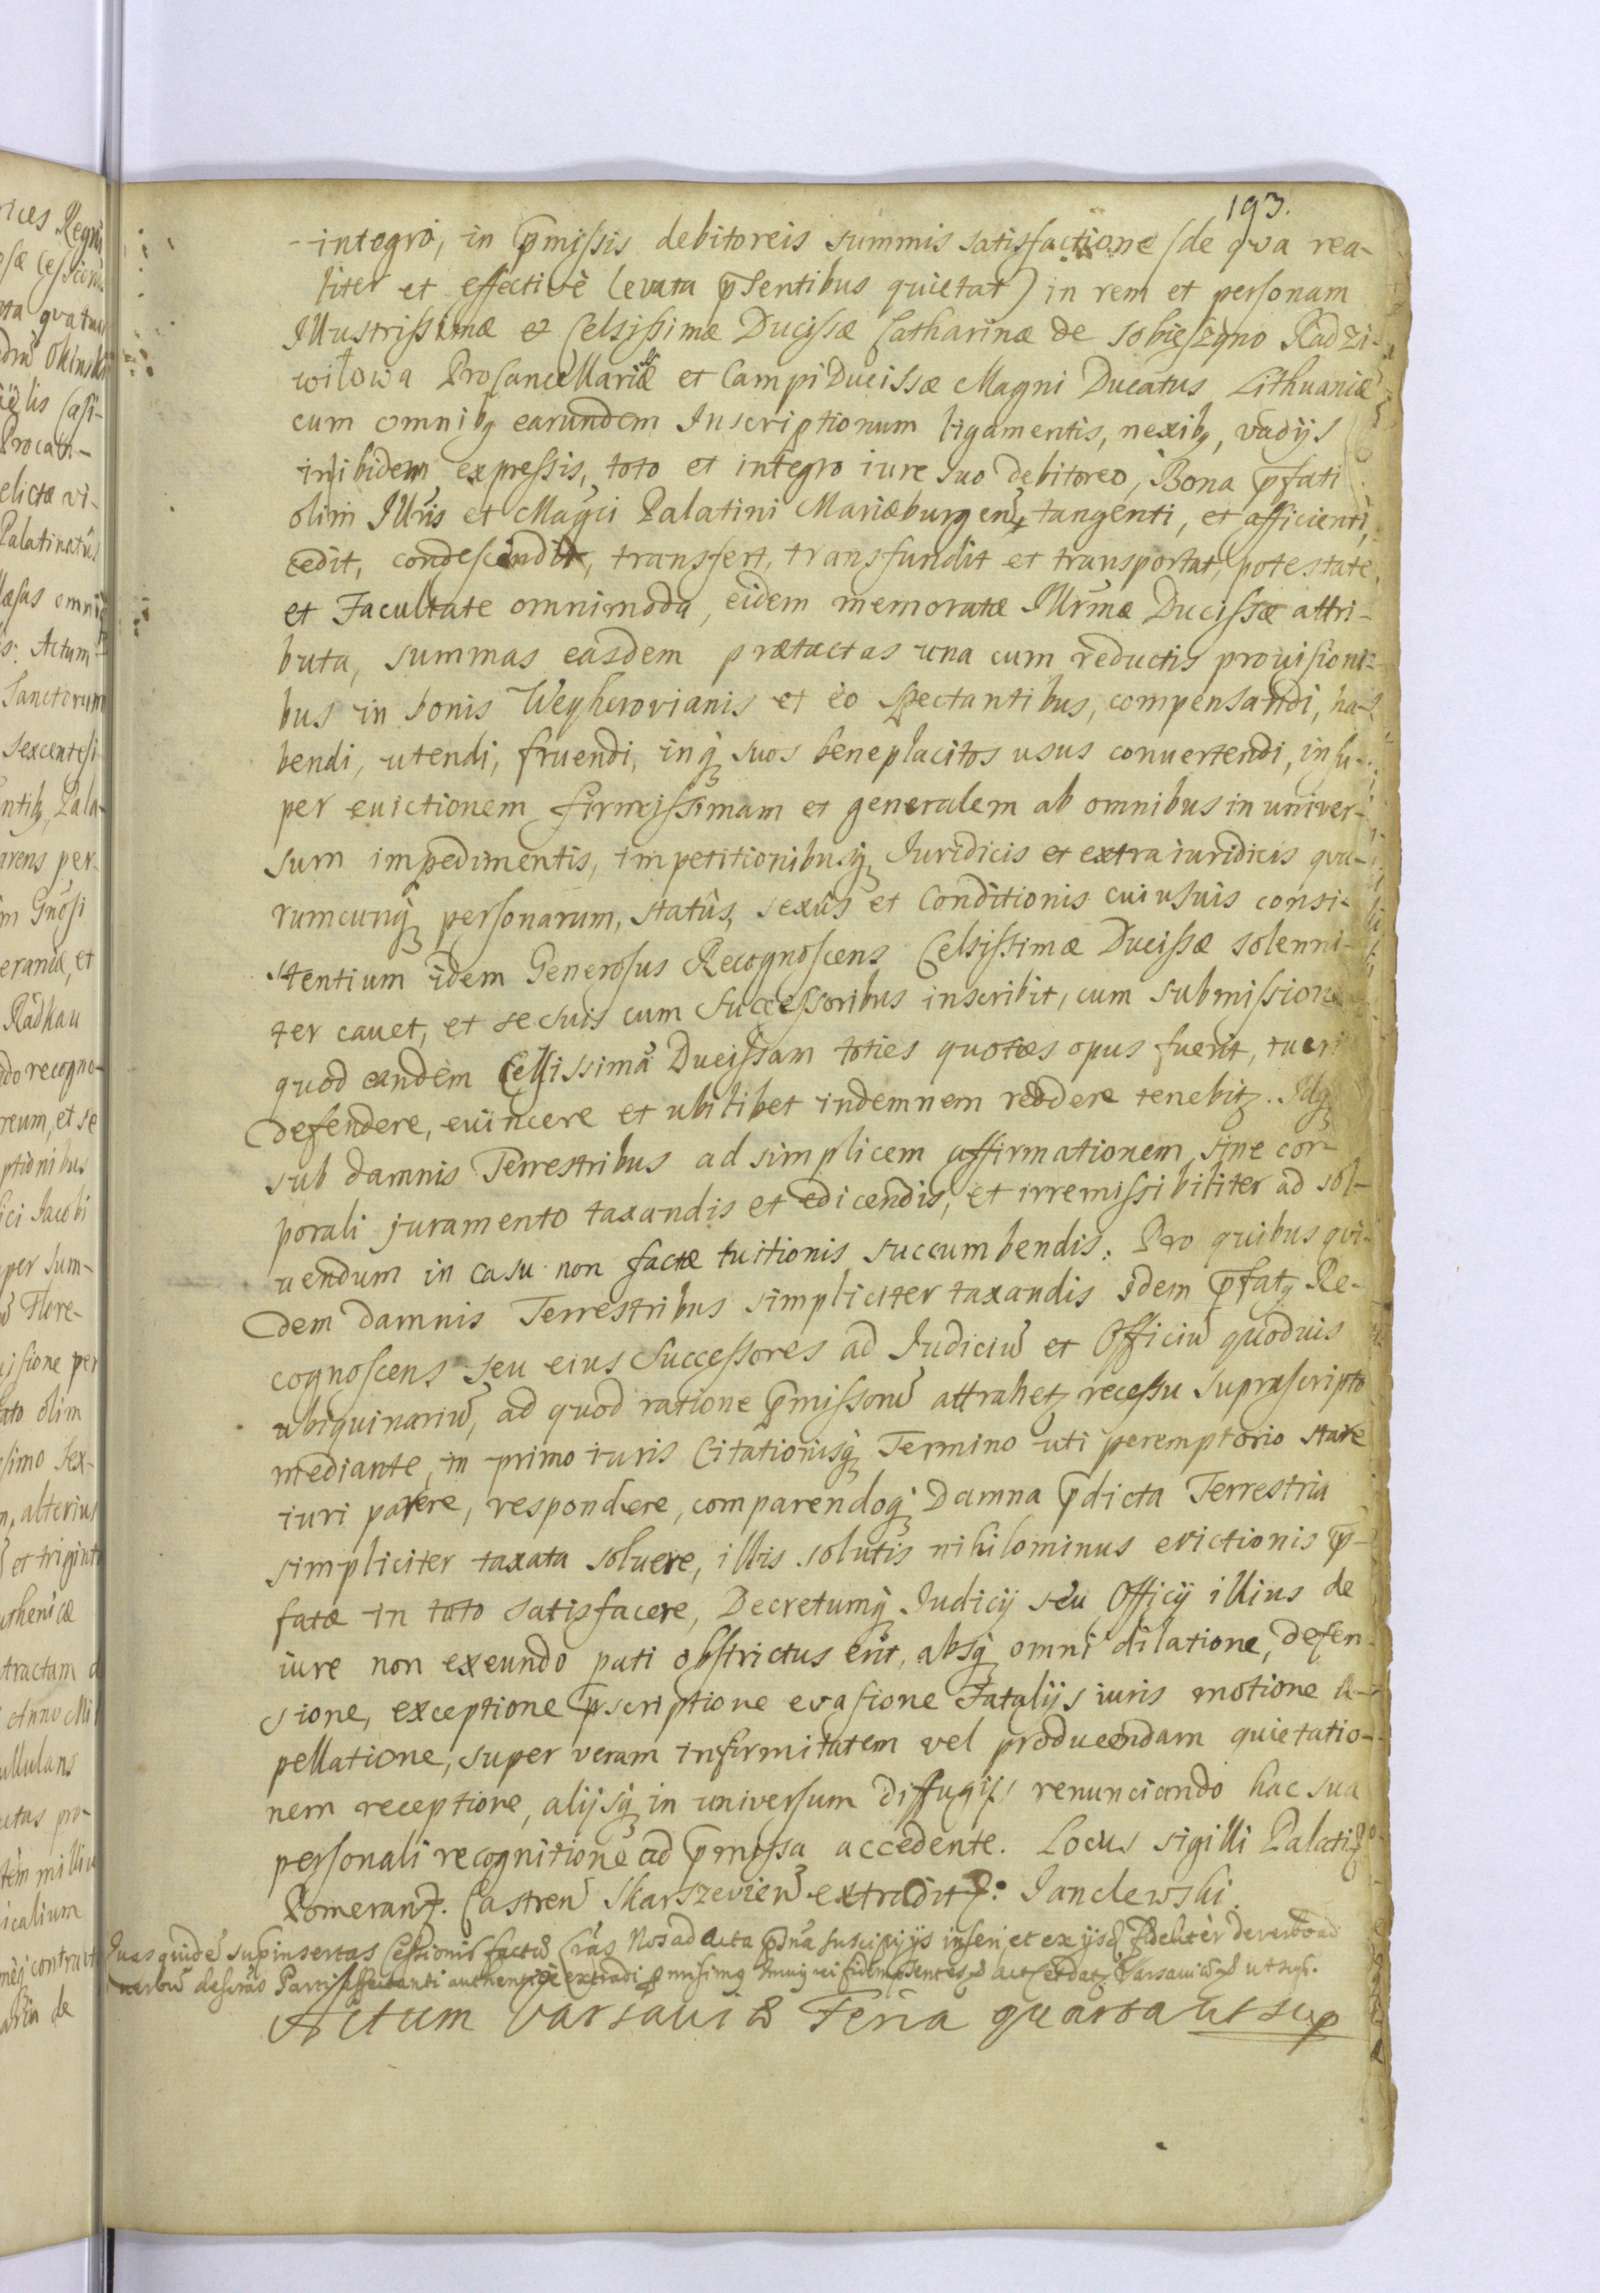 193.
integro, in p̄missis debitoreis summis satisfactione (de qva rea-
liter et effectivè levata p̄sentibus quietat) in rem et personam
Illustrissimæ et Celsissimæ Ducissæ Catharinæ de Sobieszyno Radzi-
wiłowa ProCancellariæ et Campi Ducissæ Magni Ducatus Lithuaniæ
cum omnibꝫ earundem Inscriptionum ligamentis, nexibꝫ, vadijs
inibidem expressis, toto et integro iure suo debitoreo, Bona p̄fati
olim Illr̃is et Magc̃i Palatini Mariæburgen̄ tangenti, et afficienti,
cedit, condescendit, transfert, transfundit et transportat, potestate
et Facultate omnimoda, eidem memoratæ Illr̃mæ Ducissæ attri-
buta, summas easdem prætactas una cum reductis provisioni-
bus in bonis Weyherovianis et eo spectantibus, compensandi, ha-
bendi, utendi, fruendi, inqꝫ suos beneplacitos usus convertendi, insu-
per evictionem firmissimam et generalem ab omnibus in univer-
sum impedimentis, impetitionibusqꝫ Iuridicis et extraiuridicis qva-
rumcunqꝫ personarum, statûs, sexûs et Conditionis cuiusuis consi-
stentium idem Generosus Recognoscens Celsissimæ Ducissæ solenni-
ter cauet, et se suis cum Successoribus inscribit, cum submissione
quod eandem Celsissimā Ducissam toties quoties opus fuerit, tueri
defendere, euincere et ubilibet indemnem reddere tenebitꝫ. Idqꝫ
sub damnis Terrestribus ad simplicem affirmationem, sine cor-
porali juramento taxandis et edicendis, et irremissibiliter ad sol-
uendum in casu non factæ tuitionis succumbendis. Pro quibus qvi-
dem damnis Terrestribus simpliciter taxandis idem p̄fatꝫ Re-
cognoscens seu eius Successores ad Iudiciū et Officiū quoduis
ubiquinariū, ad quod ratione p̄missorū attrahetꝫ recessu suprascripto
mediante, in primo iuris Citationisqꝫ Termino uti peremptorio stare
iuri parere, respondere, comparendoqꝫ Damna p̄dicta Terrestria
simpliciter taxata soluere, illis solutis nihilominus evictionis p̄-
fatæ in toto satisfacere, Decretumqꝫ Iudicij seu Officij illius de
iure non exeundo pati obstrictus erit, absqꝫ omni dilatione, defen-
sione, exceptione p̄scriptione evasione Fatalijs iuris motione a-
pellatione, super veram infirmitatem vel producendam quietatio-
nem receptione, alijsqꝫ in universum diffugijs renunciando hac sua
personali recognitione ad p̄missa accedente. Locus sigilli Palatiꝫ
Pomeraniꝫ. Castren̄ Skarszevien̄ extraditꝫ: Janclewski.
Quas quidē sup insertas Cessionis factæ Lr̃as Nos ad acta p̄n̄a suscipi ijs inseri, et ex ijsdꝫ fideliter de verbo ad
verbū descr̃as Parti affectanti authenticè extradi p̄misimꝫ
Actum Varsauiæ Feria quarta ut sup